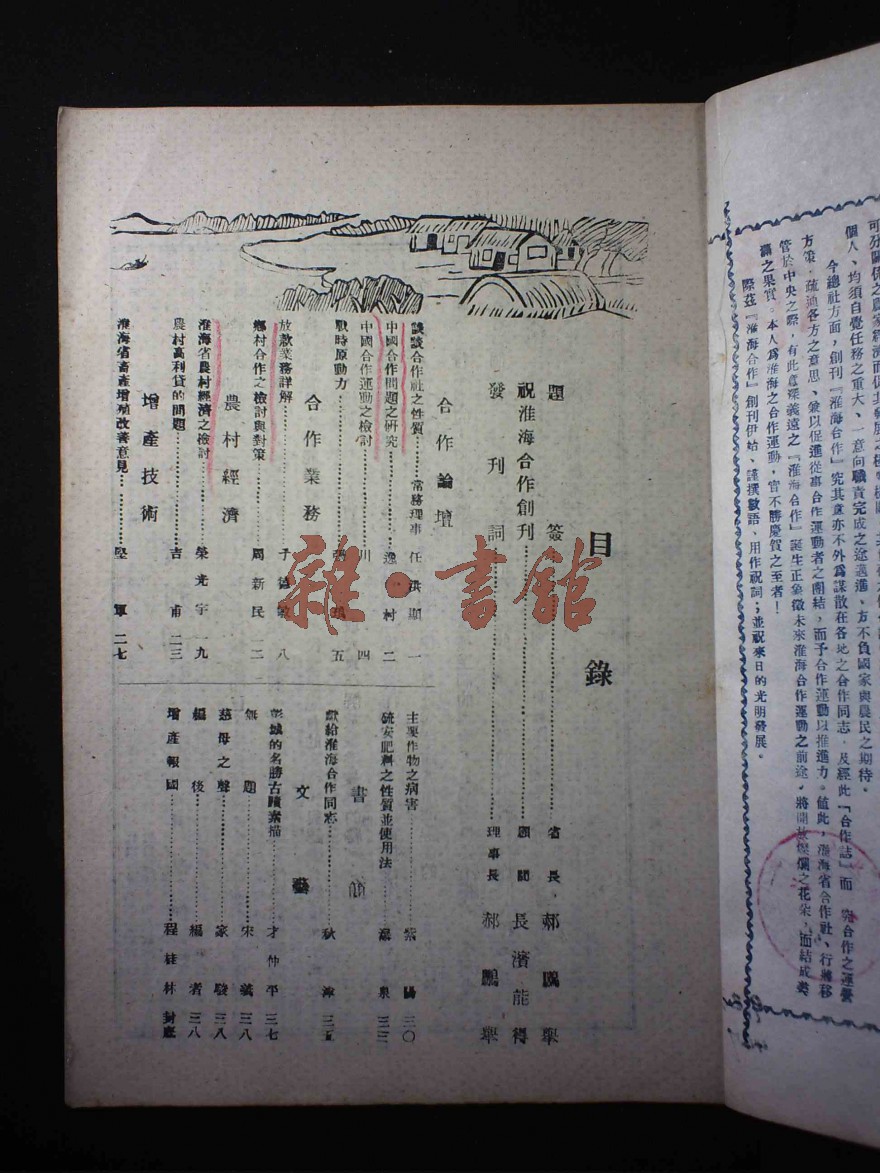 個人、均須自覺任務之重大、一意向職責完成之途邁進、方不負國家與農民之期待。
今總社方面，創刊『淮海合作』究其意亦不外爲謀散在各地之合作同志，及經此『合作誌』而
合作之運營
方策，疏通各方之意思、兼以促進從事合作運動者之團結，而予合作運動以推進力。值此，淮海省合作社、行將移
管於中央之際，有此意深義遠之『淮海合作』誕生正象徵未來淮海合作運動之前途，將開放燦爛之花朶，而結成美
滿之果實。本人爲淮海之合作運動，官不勝慶賀之至者！
際茲『淮海合作』創刊伊始、謹撰數語、用作祝詞；並祝來日的光明發展。
目錄
題簽……省長 郝鵬舉
祝淮海合作創刊……顧問 長濱能得
發刊詞……理事長 郝鵬舉
合作論壇
談談合作社之性質……常務理事 任 顯 一
中國合作問題之研究……逸 村 二
中國合作運動之檢討……川 四
戰時原動力…… 五
合作業務
放款業務詳解……于德 八
鄉村合作之檢討與對策……周新民 一二
農村經濟
淮海省農村經濟之檢討……榮光宇 一九
農村高利貸的問題……吉甫 二三
增產技術
淮海省畜產增殖改善意見……堅 軍 二七
主要作物之病害……紫 三〇
硫安肥料之性質並使用法…… 泉 三三
書
獻給淮海合作同志……秋 三五
文藝
彭城的名勝古蹟素描……才仲平 三七
無題……宋義 三八
慈母之聲……家駿 三八
編後……編者 三八
增產報國……程桂林 封底
雜·書館